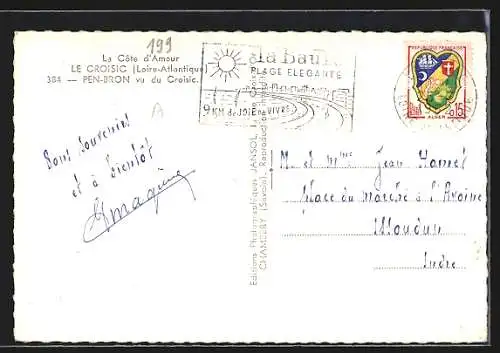 La Côte d'Amour
LE CROISIC (Loire-Atlantique)
384 — PEN-BRON vu du Croisic.
199
A
la Baule
PLAGE ELEGANTE
9 KM de JOIE de VIVRE
REPUBLIQUE FRANÇAISE
0,15
ALGER
Bons souvenirs
et à bientôt
Editions Photographiques JANSOL,
CHAMBÉRY (Savoie) Reproduction
M. et Mme Jean Hamel
Place du marché à l'Avoine
Issoudun
Indre